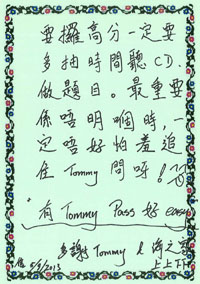 要攞高分一定要
多抽時間聽CD.
做題目。最重要
係唔明嗰時,一
定唔好怕羞追
住Tommy問呀!
"有Tommy Pass好easy"
多謝Tommy & 海之
上上下下
5/8/2013